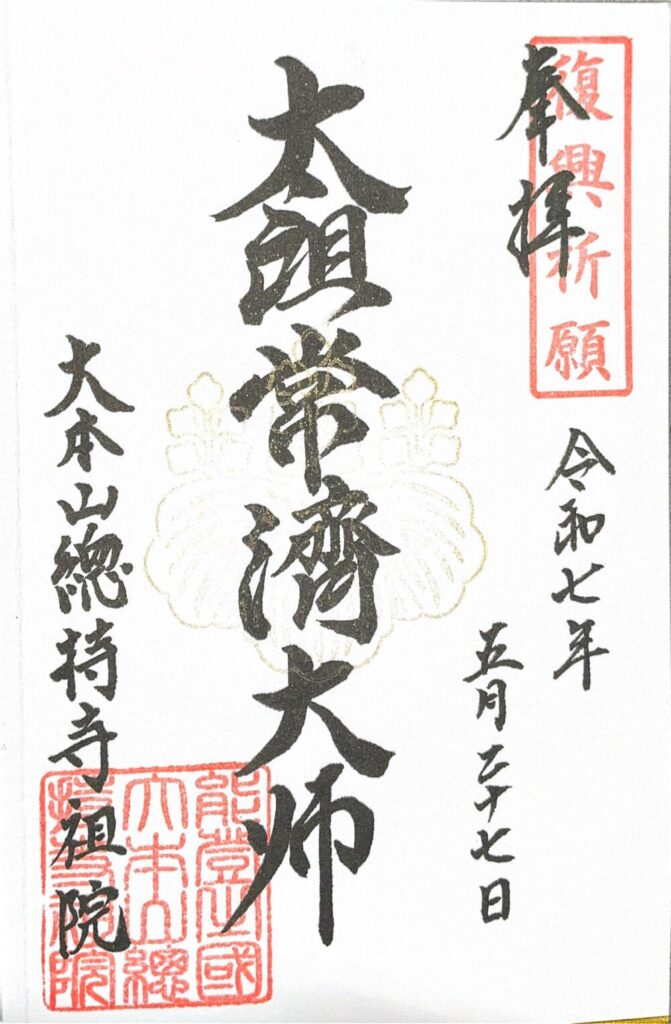 復興祈願
奉拝
令和七年
五月二十七日
太祖常濟大师
大本山總持寺祖院
能登國
大本山總
持寺祖院